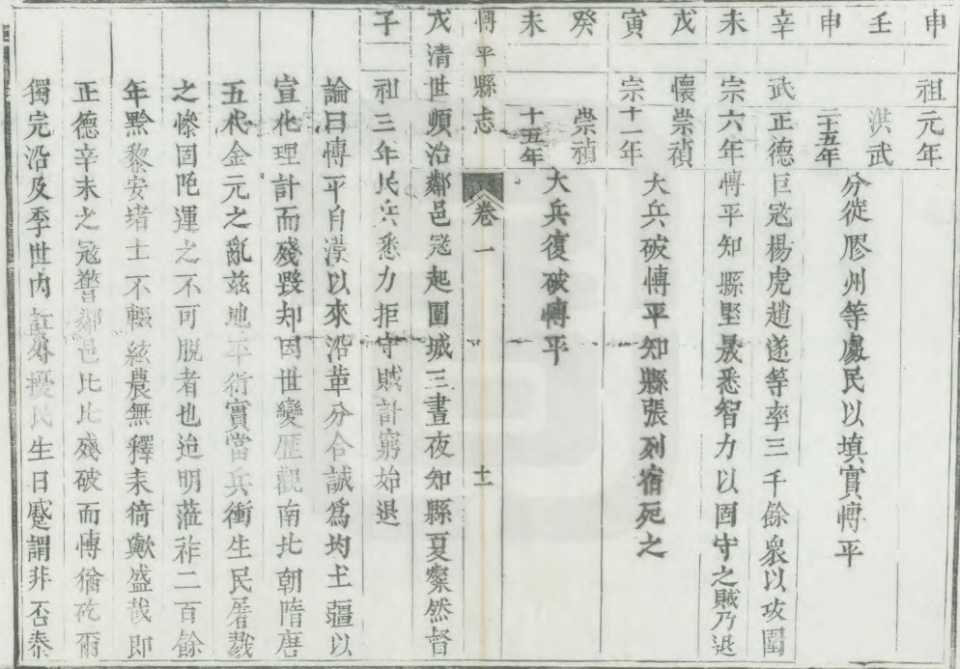 申祖元年
壬洪武
申二十五年
分徙膠州等處民以填實博平
辛武正德巨寇楊虎趙遂等率三千餘衆以攻圍
未宗六年博平知縣堅晟悉智力以固守之賊乃退
戊懷崇禎
寅宗十一年
大兵破博平知縣張列宿死之
癸崇禎
未十五年
大兵復破博平
博平縣志 卷一 十一
戊清世順治鄰邑寇起圍城三晝夜知縣夏燦然督
子祖三年民兵悉力拒守賊計窮始退
論曰博平自漢以來沿革分合誠爲均土疆以
宣化理計而殘毀却因世變歷觀南北朝隋唐
五代金元之亂茲地平衍實當兵衝生民屠戮
之慘固阨運之不可脱者也迨明蒞祚二百餘
年黔黎安堵士不輟絃農無釋耒猗歟盛哉即
正德辛未之寇警鄰邑比比殘破而博猶矻爾
獨完沿及季世内訌外擾民生日蹙謂非否泰